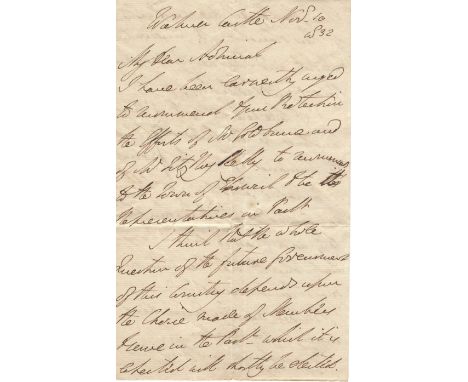 Walmer Castle Nov 10
1832
My Dear Admiral
I have been earnestly urged
to recommend to your Protection
the efforts of Mr Goldburne and
of Mr Fitz Roy Kelly to
to the Town of Ipswich to be the
Representatives in Parlt
I think that the whole
Question of the future Government
of this Country depends upon
the choice made of Members
to serve in the Parlt which it is
expected will shortly be elected.